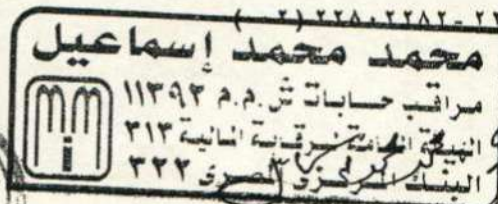 ٢٢٨٠٢٢٨٢ ( ٢ )
محمد محمد إسماعيل
مراقب حسابات ش.م.م ١١٣٩٣
الهيئة العامة للرقابة المالية ٣١٣
البنك المركزي المصرى ٣٢٢